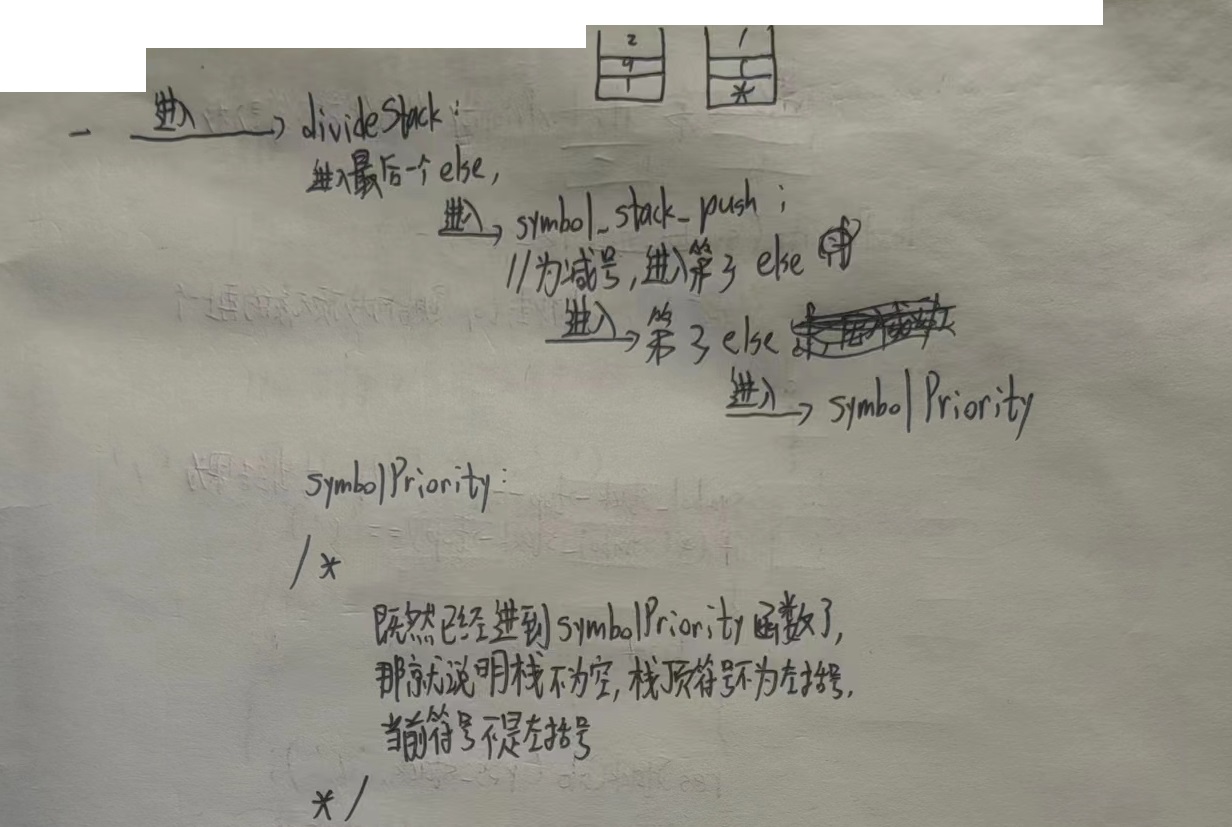 2 /
9 (
1 *
- 进入→ divideStack:
进入最后一个else,
进入→ symbol_stack_push ;
//为减号,进入第3 else 中
进入→ 第3 else
进入→ symbolPriority
symbolPriority:
/*
既然已经进到symbolPriority函数了,
那就说明栈不为空,栈顶符号不为左括号,
当前符号不是左括号
*/